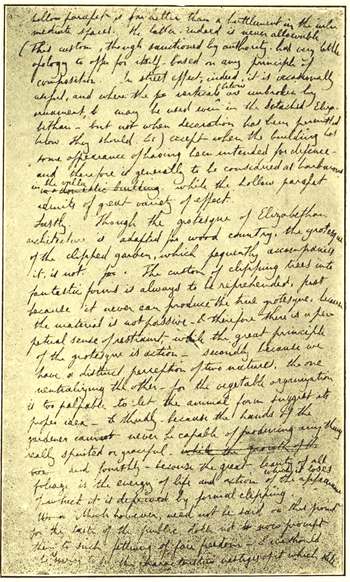 hollow parapet is far better than a battlement in the inter
mediate spaces. the latter indeed is never allowable
(This custom, though sanctioned by authority, has very little
apology to offer for itself, based on any principle of
composition. In street effect, indeed, it is occasionally
useful, and where the verticals below unbroken by
ornament, may be used even in the detached Eliza
bethan - but not when decoration has been permitted
below they should to) except when the building has
some appearance of having been intended for defence -
and therefore is generally to be considered as barbarous
in the villa while the hollow parapet
admits of great variety of effect.
Lastly Though the grotesque of Elizabethan
architecture is adapted for wood country, the grotesque
of the clipped garden, which frequently accompanies
it, is not so. The custom of clipping trees into
fantastic forms is always to be reprehended, first
because it never can produce the true grotesque, because
the material is not passive - & therefore there is a per
petual sense of restraint, while the great principle
of the grotesque is action - secondly because we
have a distinct perception of two natures, the one
neutralizing the other - for the vegetable organization
is too palpable to let the animal form suggest its
proper idea - & thirdly because the hands of the
gardener cannot never is capable of producing any thing
really spirited or graceful. while the growth of the
And fourthly - because the great beauty of all
foliage is the energy of life and action of which it loses the appearance
when it is by formal clipping
Much however need not be said on this point
for the taste of the public does not now prompt
them to such
to characteristic vestiges of which the